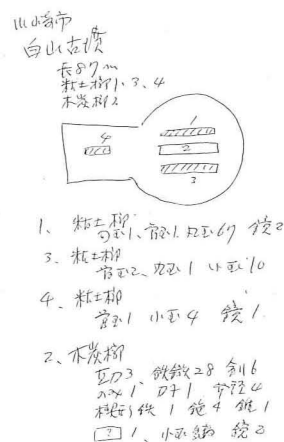 川崎市
白山古墳
長87m
粘土槨1、3、4
木炭槨2
1
4
2
3
1、粘土槨
勾玉1、管玉1、丸玉67 鏡2
3、粘土槨
管玉2、丸玉1 小玉10
4、粘土槨
管玉1 小玉4 鏡1
2、木炭槨
直刀3、鉄鏃28 剣6
1 刀子1 4
形鉄1 鉇4 錐1
? 1、小玉多数 鏡2